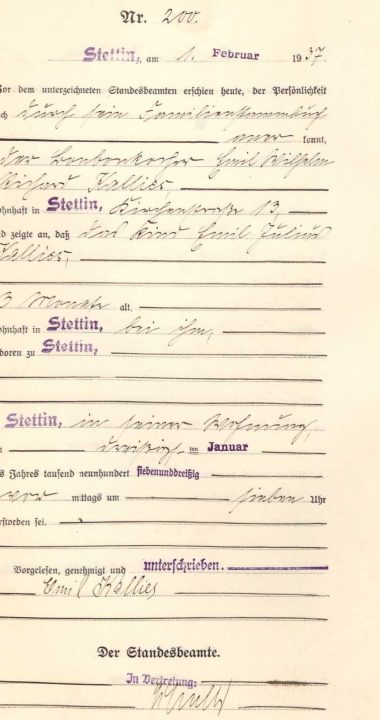 Nr. 200.
Stettin, am 1. Februar 1937.
vor dem unterzeichneten Standesbeamten erschien heute, der Persönlichkeit
ch durch sein Familienstammbuch
aner kannt,
der Bonbonkocher Emil Wilhelm
Richard Kallies,
ohnhaft in Stettin, Kirchenstraße 13,
d zeigte an, daß das Kind Emil Julius
Kallies,
3 Monate alt,
ohnhaft in Stettin, bei ihm,
boren zu Stettin,
Stettin, in seiner Wohnung,
dreißigsten Januar
s Jahres tausend neunhundert siebenunddreißig
vor mittags um sieben Uhr
rstorben sei.
Vorgelesen, genehmigt und unterschrieben.
Emil Kallies
Der Standesbeamte.
In Vertretung: